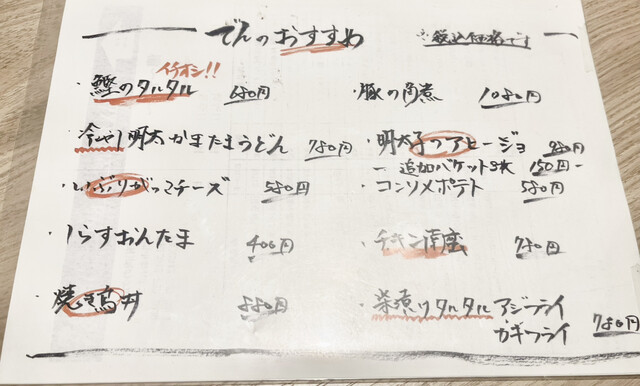 でんのおすすめ ※税込価格です
イチオシ!!
・鰹のタルタル 680円
・冷やし明太かまたまうどん 780円
・いぶりがっこチーズ 580円
・しらすおんたま 400円
・焼き鳥丼 880円
・豚の角煮 1080円
・明太子のアヒージョ
ー追加バケット3枚 150円ー
・コンソメポテト 580円
・チキン南蛮 780円
・柴漬けタルタル アジフライ
・カキフライ 780円